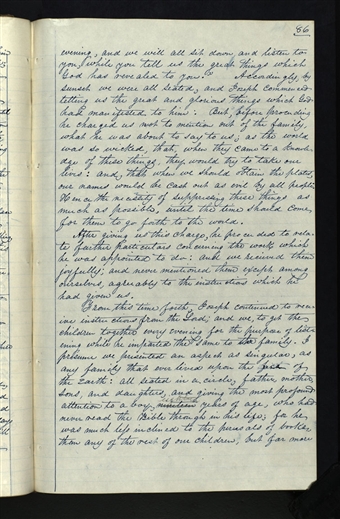 86
evening, and we will all sit down and listen to
you, while you tell us the great things which
God has revealed to you." Accordingly, by
sunset we were all seated, and Joseph commenced
telling us the great and glorious things which God
had manifested to him: But, before proceeding
he charged us not to mention out of the family,
what he was about to say to us; as the world
was so wicked, that, when they came to a knowle-
dge of these things, they would try to take our
lives: and, that when we should obtain the plates,
our names would be cast out as evil by all people,
Hence the necessity of suppressing these things as
much as possible, until the time should come,
for them to go forth to the world.
After giving us this charge, he proceeded to rela-
te further particulars concerning the work which
he was appointed to do: and we received them
joyfully; and never mentioned them except among
ourselves, agreeably to the instructions which he
had given us.
From this time forth, Joseph continued to rece-
ive instructions from the Lord; and we, to get the
children together every evening for the purpose of list-
ening while he imparted the same to the family. I
presume we presented an aspect as singular, as
any family that ever lived upon the face of
the Earth: all seated in a circle, father, mother,
sons, and daughters, and giving the most profound
attention to a boy, nineteen years of age, who had
never read the Bible through in his life; for he
was much less inclined to the perusals of books,
than any of the rest of our children, but far more